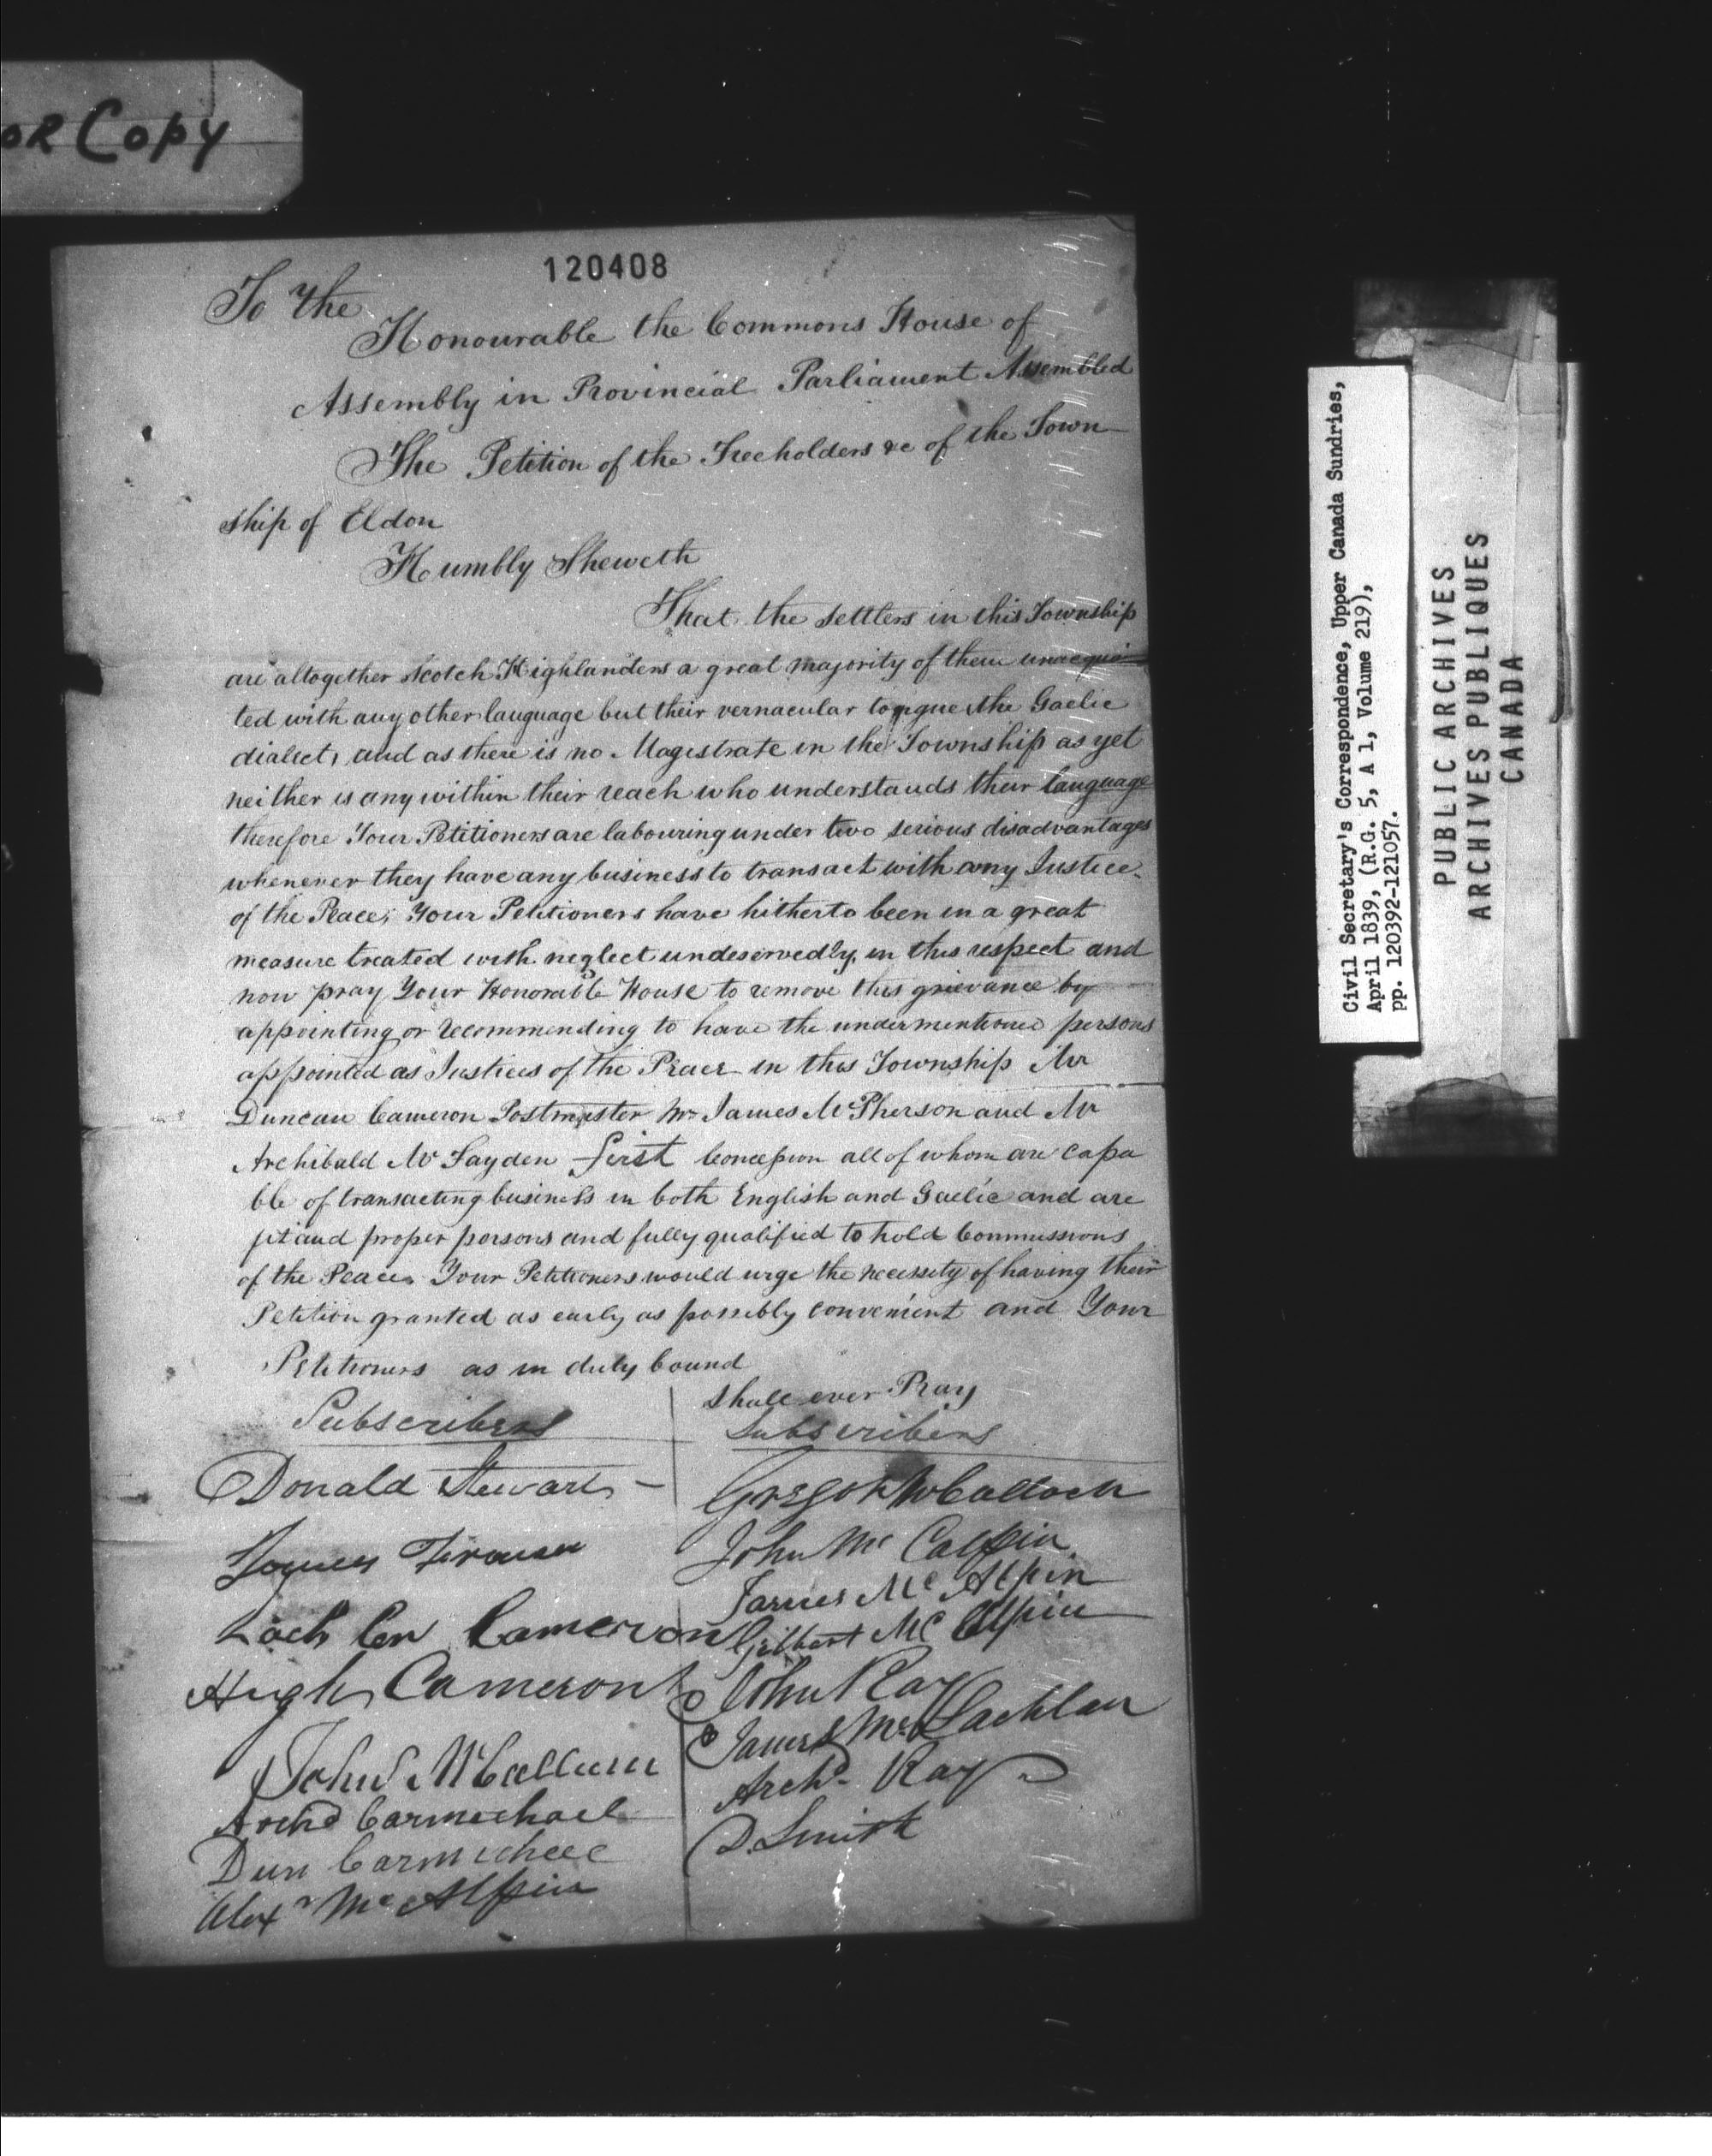 OR Copy
120408
To the
Honourable the Commons House of
Assembly in Provincial Parliament Assembled
The Petition of the Freeholders &c of the Town
ship of Eldon
Humbly Sheweth
That the settlers in this Township
are altogether Scotch Highlanders a great majority of them unacquain
ted with any other language but their vernacular tongue the Gaelic
dialect, and as there is no Magistrate in the Township as yet
neither is any within their reach who understands their language
therefore Your Petitioners are labouring under two serious disadvantages
whenever they have any business to transact with any Justice
of the Peace; Your Petitioners have hitherto been in a great
measure treated with neglect undeservedly in this respect and
now pray Your Honorable House to remove this grievance by
appointing or recommending to have the undermentioned persons
appointed as Justices of the Peace in this Township Mr
Duncan Cameron Postmaster Mr James McPherson and Mr
Archibald Mc Fayden first Concession all of whom are capa
ble of transacting business in both English and Gaelic and are
fit and proper persons and fully qualified to hold Commissions
of the Peace. Your Petitioners would urge the necessity of having their
Petition granted as early as possibly convenient and Your
Petitioners as in duty bound
shall ever Pray
Subscribers
Donald Stewart
Cameron
Hugh Cameron
John McCallum
Archd Carmichael
Dun Carmichael
Alexr Mc Alpin
Subscribers
Gregor
John Mc Calpin
James Mc Alpin
Gilbert Mc Alpin
John Ray
James Mc Lachlan
Archd Ray
D. Smith
Civil Secretary's Correspondence, Upper Canada Sundries,
April 1839, (R.G. 5, A 1, Volume 219),
pp. 120392-121057.
PUBLIC ARCHIVES
ARCHIVES PUBLIQUES
CANADA